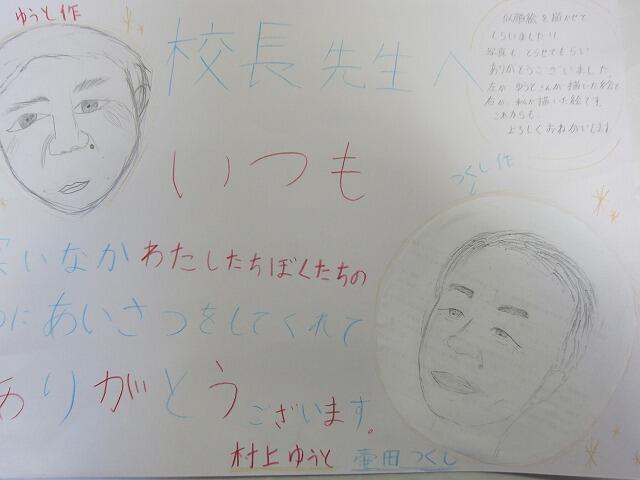 ゆうと作
校長先生へ
似顔絵を描かせて
もらいました!!
写真も とらせてもらい
ありがとうございました
左が ゆうとさんが描いた絵で
右が 私が描いた絵です
これからも
よろしくおねがいします
いつも
つくし作
いなか わたしたちぼくたちの
に あいさつをしてくれて
ありがとうございます。
村上ゆうと 壷田つくし